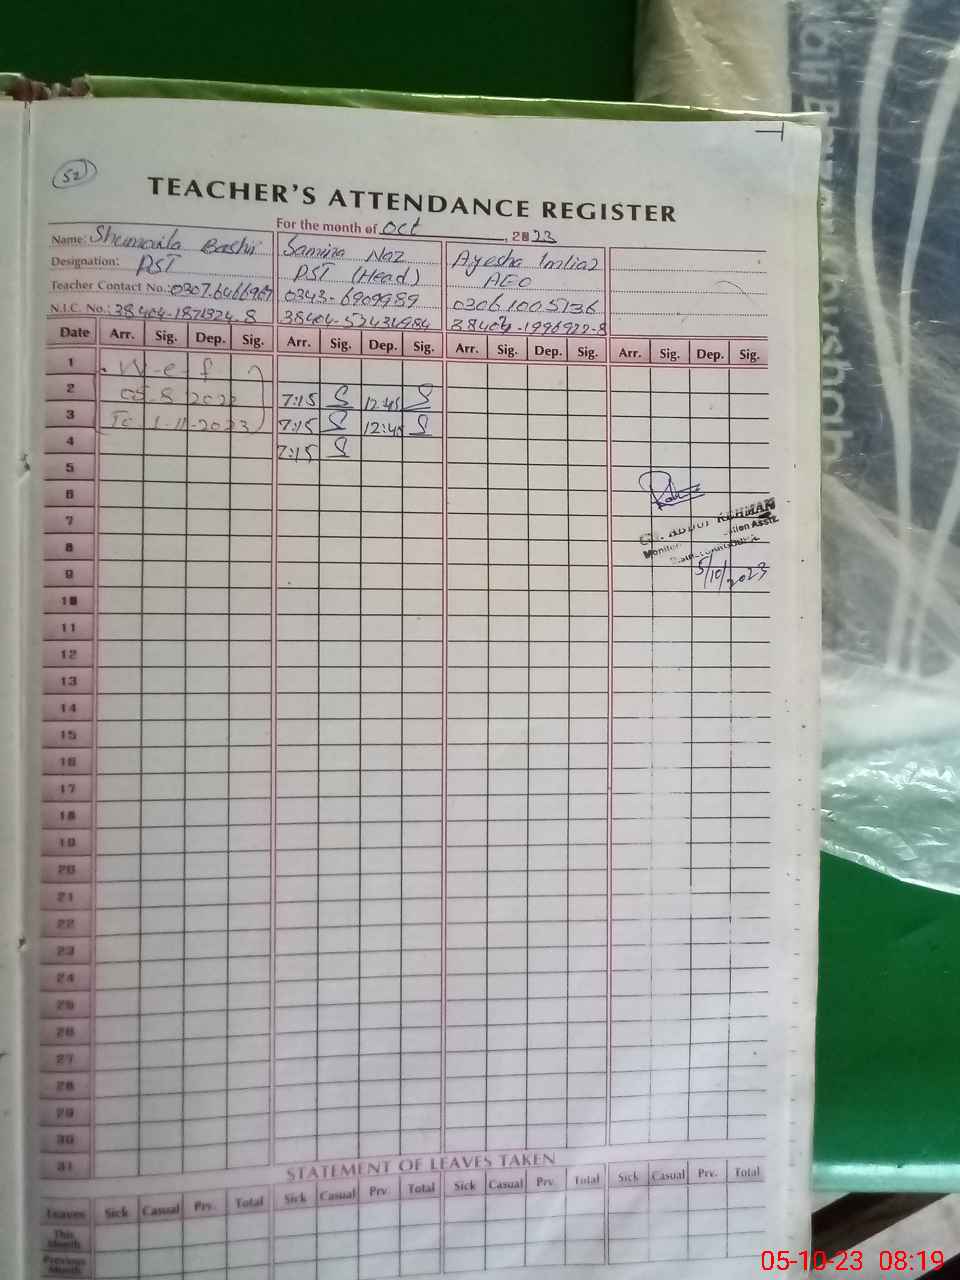 52
TEACHER'S ATTENDANCE REGISTER
For the month of Oct, 2023
Name: Shumaila Bashir Samina Naz Ayesha Imtiaz
Designation: PST PST (Head) AEO
Teacher Contact No.: 0307-6466967 0343-6909989 0306 1005736
N.I.C. No.: 38404-1871324-8
Date Arr. Sig. Dep. Sig. Arr. Sig. Dep. Sig. Arr. Sig. Dep. Sig. Arr. Sig. Dep. Sig.
1 W-e-f
2 7:15 S 12:45 S
3 To 1-11-2023 7:15 S 12:45 S
4 7:15 S
5
6
7 REHMAN
8 Monitor
9 5/10/2023
10
11
12
13
14
15
16
17
18
19
20
21
22
23
24
25
26
27
28
29
30
31
STATEMENT OF LEAVES TAKEN
Leaves Sick Casual Prv. Total Sick Casual Prv Total Sick Casual Prv. Total Sick Casual Prv. Total
This Month
Previous Month
05-10-23 08:19